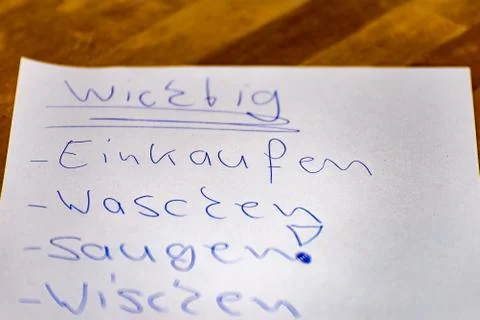 Wichtig
- Einkaufen
- Waschen
- Saugen!
- Wischen